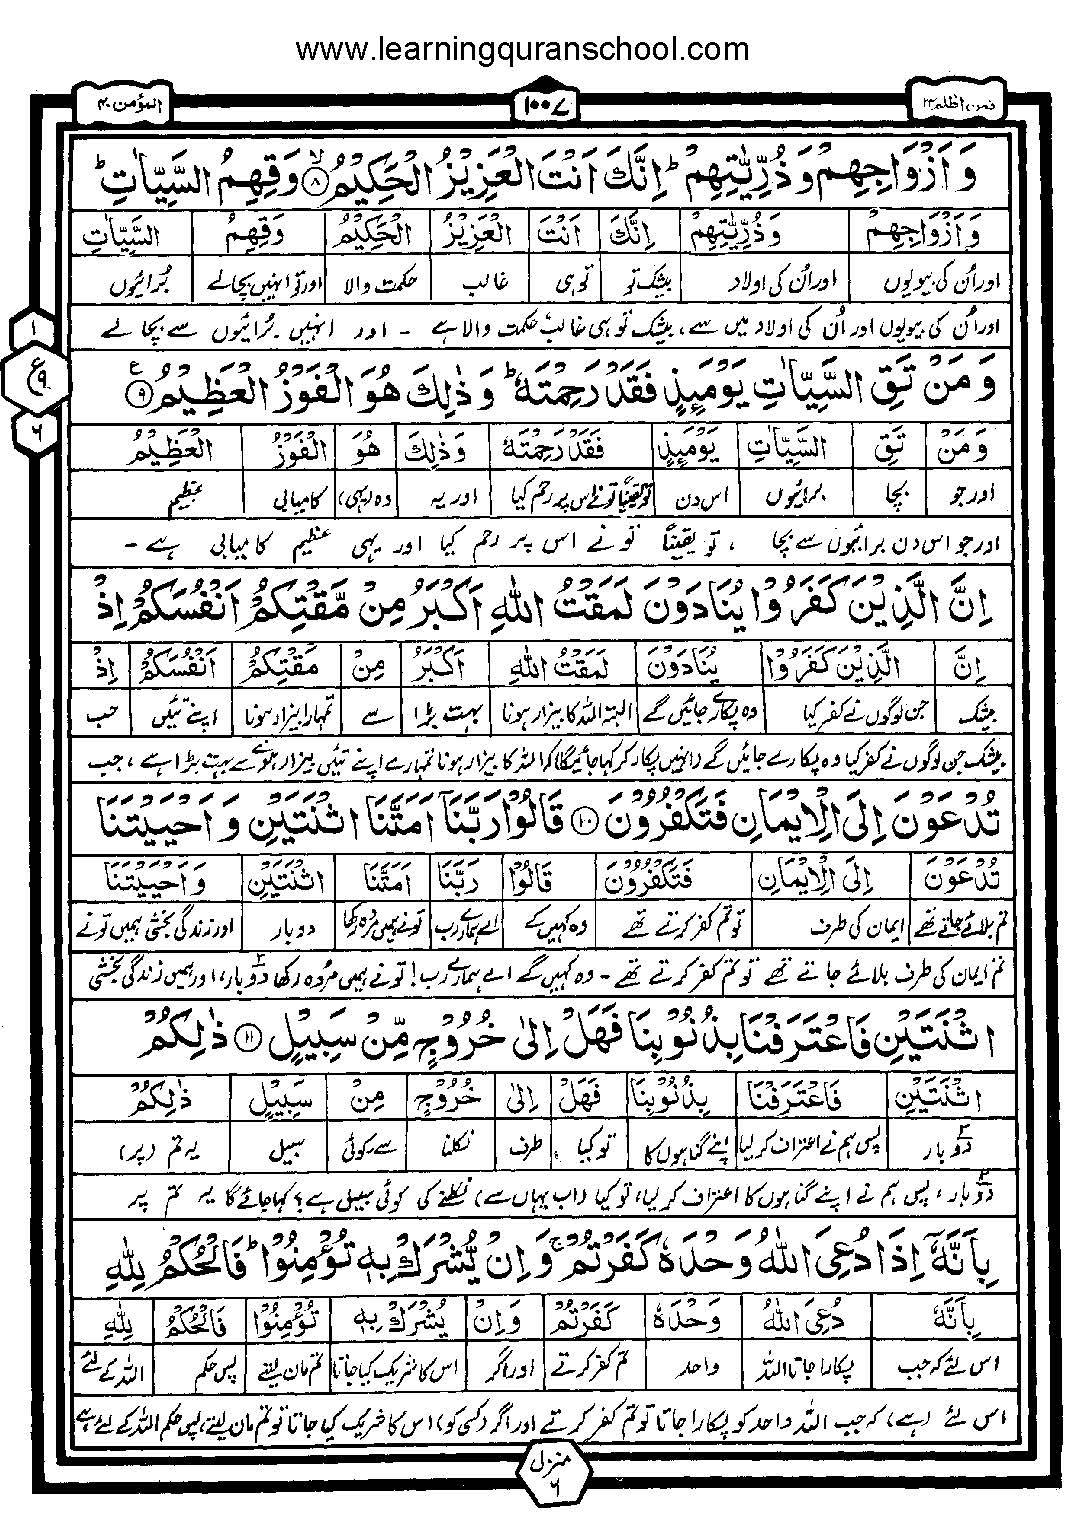 www.learningquranschool.com
المؤمن ۴۰
۱۰۰۷
فمن اظلم ۲۴
وَ اَزْوَاجِهِمْ وَ ذُرِّیّٰتِهِمْ ؕ اِنَّكَ اَنْتَ الْعَزِیْزُ الْحَكِیْمُ ۙ۸ وَ قِهِمُ السَّیِّاٰتِ ؕ
وَ اَزْوَاجِهِمْ وَ ذُرِّیّٰتِهِمْ اِنَّكَ اَنْتَ الْعَزِیْزُ الْحَكِیْمُ وَ قِهِمُ السَّیِّاٰتِ
اور اُن کی بیویوں اور اُن کی اولاد بیشک تو تو ہی غالب حکمت والا اور تو انہیں بچا لے بُرائیوں
اور اُن کی بیویوں اور اُن کی اولاد میں سے، بیشک تو ہی غالب حکمت والا ہے - اور انہیں بُرائیوں سے بچا لے
۱
ع
۹
۶
وَ مَنْ تَقِ السَّیِّاٰتِ یَوْمَئِذٍ فَقَدْ رَحِمْتَهٗ ؕ وَ ذٰلِكَ هُوَ الْفَوْزُ الْعَظِیْمُ ۹ع
وَ مَنْ تَقِ السَّیِّاٰتِ یَوْمَئِذٍ فَقَدْ رَحِمْتَهٗ وَ ذٰلِكَ هُوَ الْفَوْزُ الْعَظِیْمُ
اور جو بچا برائیوں اس دن تو یقیناً تو نے اس پر رحم کیا اور یہ وہ (یہی) کامیابی عظیم
اور جو اس دن برائیوں سے بچا ، تو یقیناً تو نے اس پر رحم کیا اور یہی عظیم کامیابی ہے -
اِنَّ الَّذِیْنَ كَفَرُوْا یُنَادَوْنَ لَمَقْتُ اللّٰهِ اَكْبَرُ مِنْ مَّقْتِكُمْ اَنْفُسَكُمْ اِذْ
اِنَّ الَّذِیْنَ كَفَرُوْا یُنَادَوْنَ لَمَقْتُ اللّٰهِ اَكْبَرُ مِنْ مَقْتِكُمْ اَنْفُسَكُمْ اِذْ
بیشک جن لوگوں نے کفر کیا وہ پکارے جائیں گے البتہ اللہ کا بیزار ہونا بہت بڑا سے تمہارا بیزار ہونا اپنے تئیں جب
بیشک جن لوگوں نے کفر کیا وہ پکارے جائیں گے (انہیں پکار کر کہا جائیگا) کہ اللہ کا بیزار ہونا تمہارے اپنے تئیں بیزار ہونے سے بہت بڑا ہے، جب
تُدْعَوْنَ اِلَی الْاِیْمَانِ فَتَكْفُرُوْنَ ۱۰ قَالُوْا رَبَّنَاۤ اَمَتَّنَا اثْنَتَیْنِ وَ اَحْیَیْتَنَا
تُدْعَوْنَ اِلَی الْاِیْمَانِ فَتَكْفُرُوْنَ قَالُوْا رَبَّنَا اَمَتَّنَا اثْنَتَیْنِ وَ اَحْیَیْتَنَا
تم بلائے جاتے تھے ایمان کی طرف تو تم کفر کرتے تھے وہ کہیں گے اے ہمارے رب تو نے ہمیں مُردہ رکھا دو بار اور زندگی بخشی ہمیں تو نے
تم ایمان کی طرف بلائے جاتے تھے تو تم کفر کرتے تھے - وہ کہیں گے اے ہمارے رب! تو نے ہمیں مُردہ رکھا دو بار، اور ہمیں زندگی بخشی
اثْنَتَیْنِ فَاعْتَرَفْنَا بِذُنُوْبِنَا فَهَلْ اِلٰی خُرُوْجٍ مِّنْ سَبِیْلٍ ۱۱ ذٰلِكُمْ
اثْنَتَیْنِ فَاعْتَرَفْنَا بِذُنُوْبِنَا فَهَلْ اِلٰی خُرُوْجٍ مِنْ سَبِیْلٍ ذٰلِكُمْ
دو بار پس ہم نے اعتراف کر لیا اپنے گناہوں کا تو کیا طرف نکلنا سے، کوئی سبیل یہ تم (پر)
دو بار، پس ہم نے اپنے گناہوں کا اعتراف کر لیا، تو کیا (اب یہاں سے) نکلنے کی کوئی سبیل ہے؟ کہا جائے گا یہ تم پر
بِاَنَّهٗۤ اِذَا دُعِیَ اللّٰهُ وَحْدَهٗ كَفَرْتُمْ ۚ وَ اِنْ یُّشْرَكْ بِهٖ تُؤْمِنُوْا ؕ فَالْحُكْمُ لِلّٰهِ
بِاَنَّهٗ دُعِیَ اللّٰهُ وَحْدَهٗ كَفَرْتُمْ وَ اِنْ یُشْرَكْ بِهٖ تُؤْمِنُوْا فَالْحُكْمُ لِلّٰهِ
اس لئے کہ جب پکارا جاتا اللہ واحد تم کفر کرتے اور اگر اس کا شریک کیا جاتا تم مان لیتے پس حکم اللہ کے لئے
اس لئے (ہے)، کہ جب اللہ واحد کو پکارا جاتا تو تم کفر کرتے اور اگر (کسی کو) اس کا شریک کیا جاتا تو تم مان لیتے، پس حکم اللہ کے لئے ہے
منزل ۶